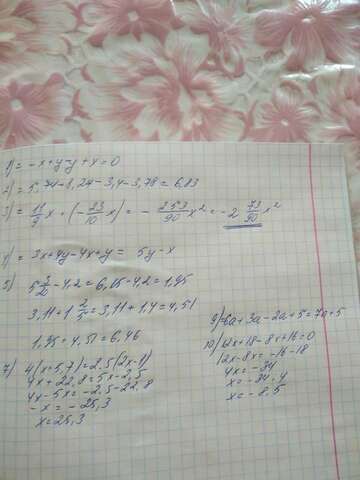 1) = -x+y-y+x=0
2) = 5,74-8,24-3,4-3,78=6,83
3) = 11/9 x · (-23/10 x) = - 253/90 x² = -2 73/90 x²
= 3x+4y-4x+y = 5y-x
5) 5 3/20 -4,2=6,15-4,2=1,95
3,11+1 2/5=3,11+1,4=4,51
1,95+4,51=6,46
7) 4(x+5,7)=2,5(2x-1)
4x+22,8=5x-2,5
4x-5x=-2,5-22,8
-x=-25,3
x=25,3
9) 6a+3a-2a+5=7a+5
10) 12x+18-8x+16=0
12x-8x=-16-18
4x=-34
x=-34:4
x=-8,5